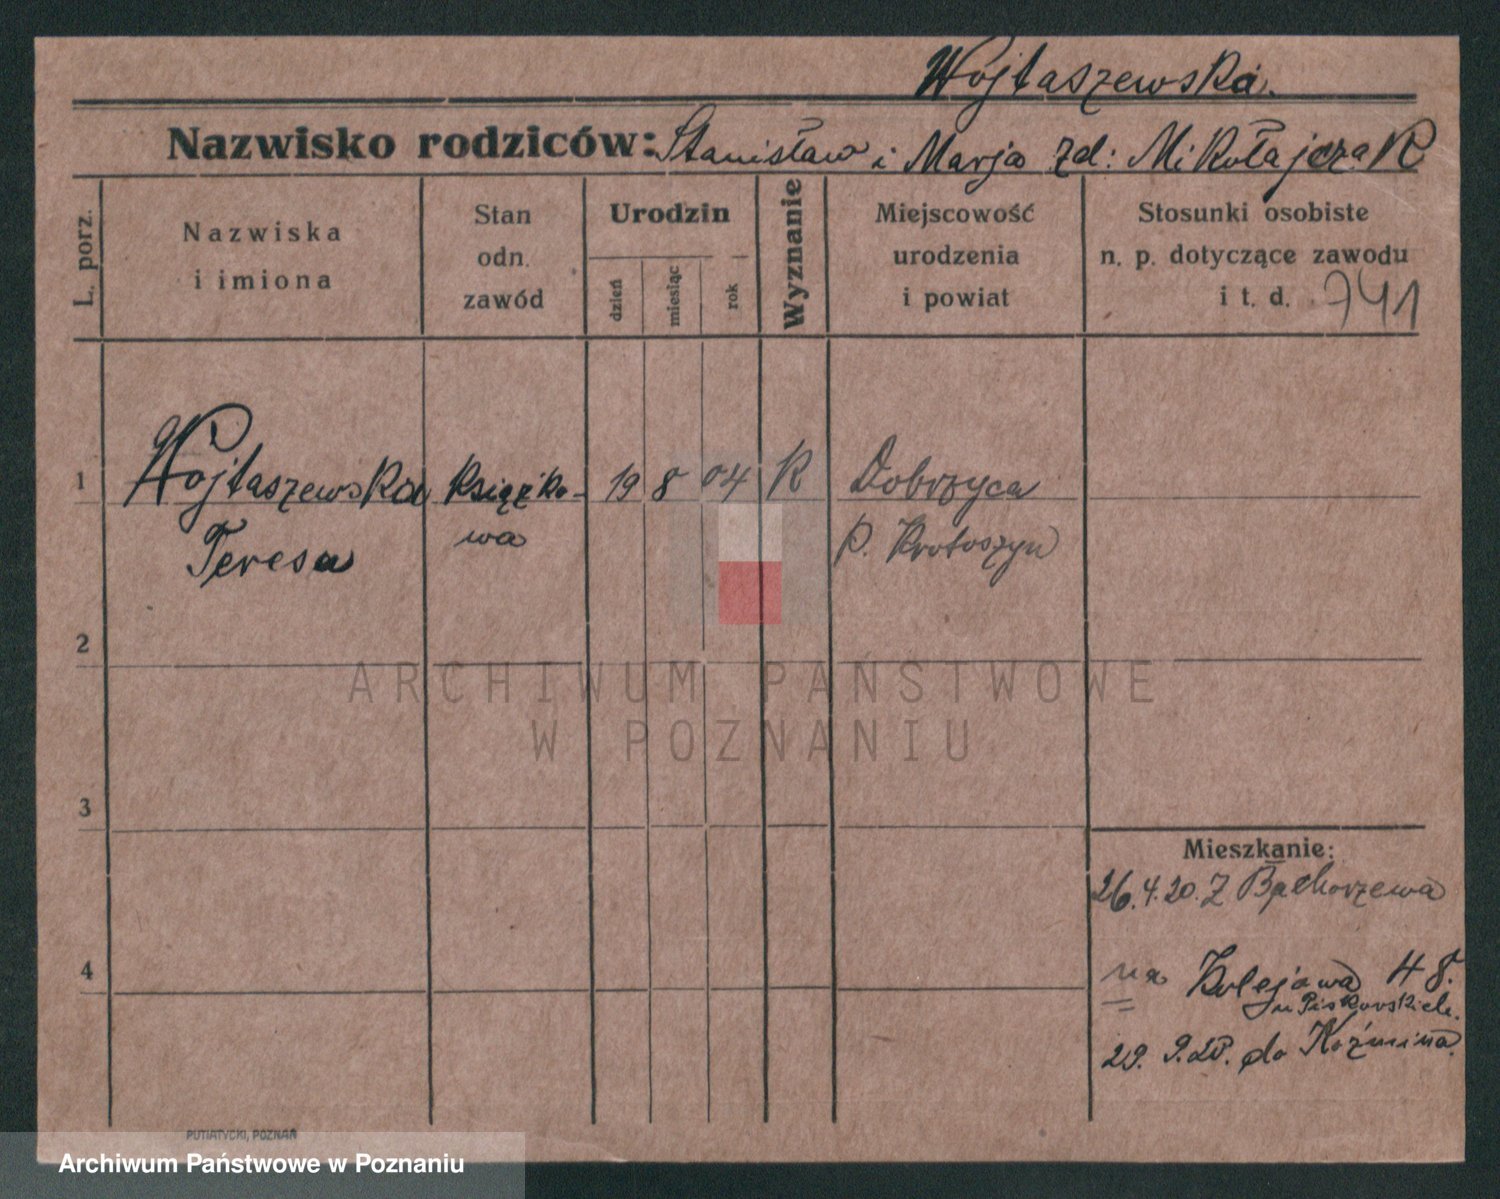 Wojtaszewska.
Nazwisko rodziców: Stanisław i Marja zd: Mikołajczak
L. porz.
Nazwiska
i imiona
Stan
odn.
zawód
Urodzin
dzień
miesiąc
rok
Wyznanie
Miejscowość
urodzenia
i powiat
Stosunki osobiste
n. p. dotyczące zawodu
i t. d. 741
1 Wojtaszewska Książko- 19 8 04 K Dobrzyca
Teresa wa p. Krotoszyn
2
ARCHIWUM PAŃSTWOWE
W POZNANIU
3
Mieszkanie:
26.4.20. Z Bachorzewa
4
na Kolejowa 48.
u Piskorskich.
29. 9. 20. do Koźmina.
PUTIATYCKI, POZNAŃ
Archiwum Państwowe w Poznaniu